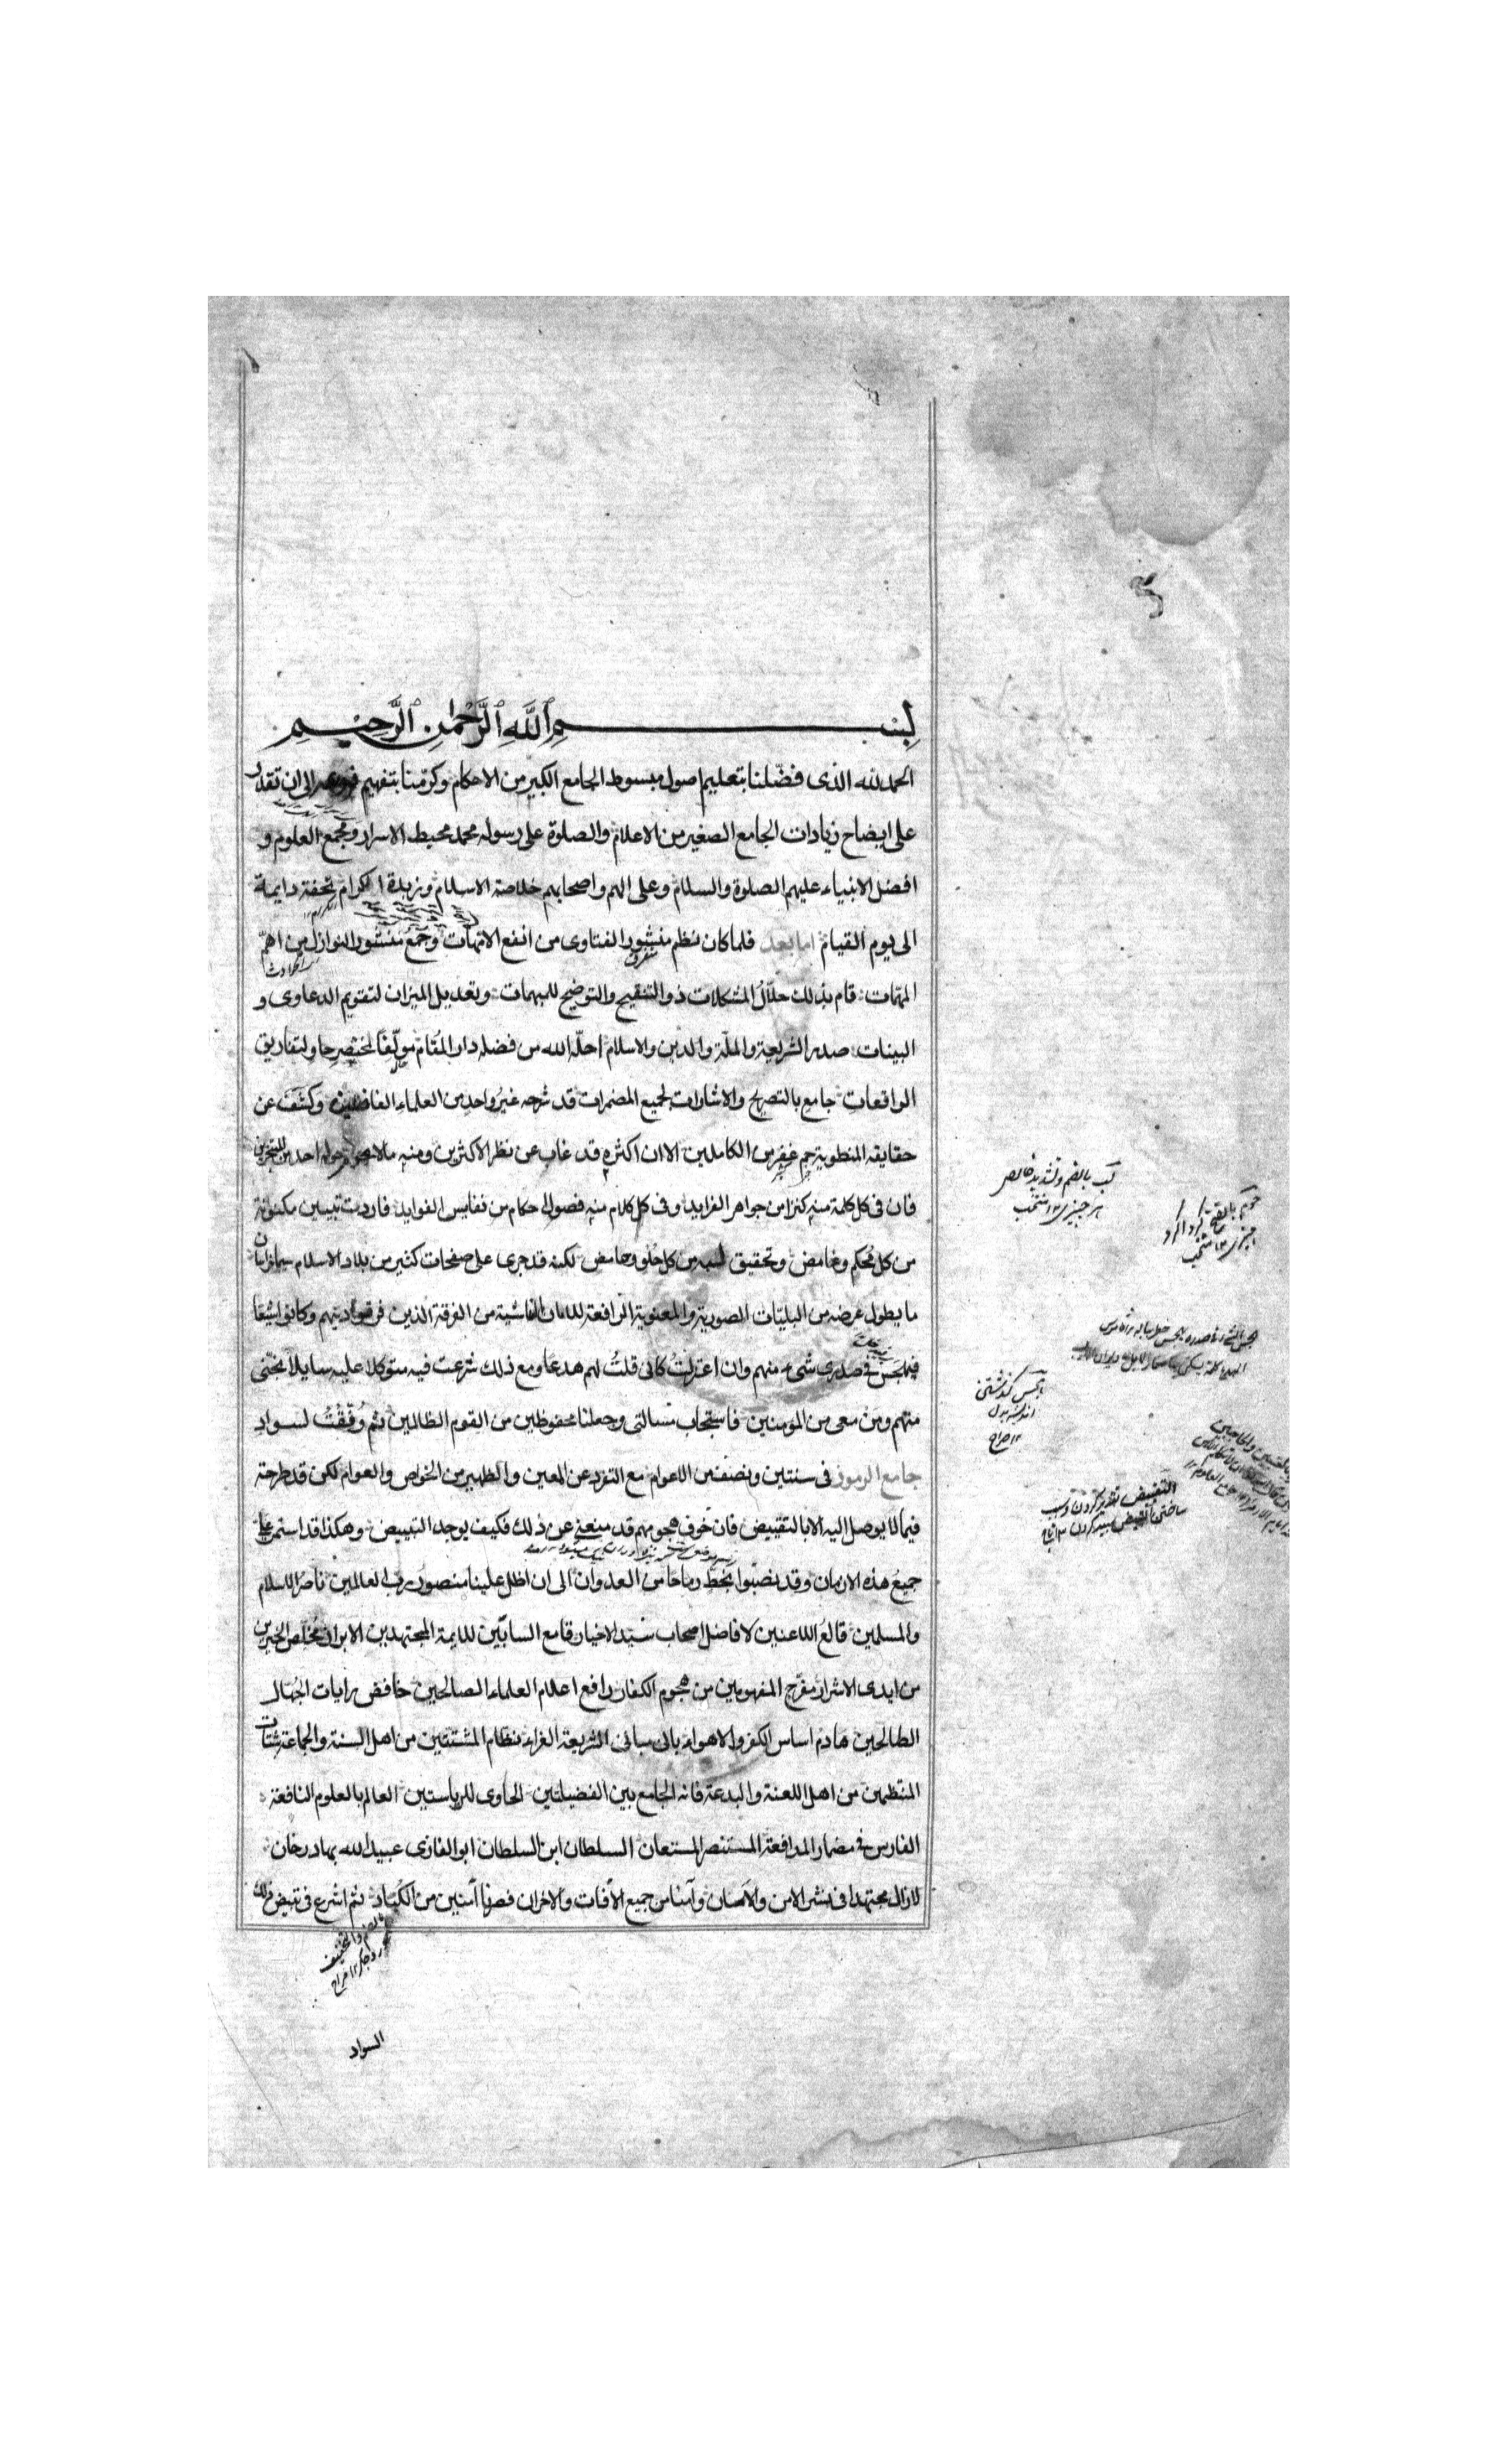 بسم الله الرحمن الرحيم
الحمد لله الذى فضّلنا بتعليم اصول مبسوط الجامع الكبير من الاحكام وكرّمنا بتفهيم فروعه الى ان نقدر
على ايضاح زيادات الجامع الصغير من الاعلام والصلوة على رسوله محمد محيط الاسرار ومجمع العلوم و
افضل الانبياء عليهم الصلوة والسلام وعلى الهم واصحابهم خلاصة الاسلام وزبدة الكرام تحفة دايمة
الى يوم القيام اما بعد فلما كان نظم منشور الفتاوى من انفع الامهات وجمع منشور النوازل من اهمّ
المهمّات قام بذلك حلّالُ المشكلات ذو التنقيح والتوضيح للمبهمات وتعديل الميزان لتقويم الدعاوى و
البينات صدر الشريعة والملّة والدين والاسلام احلّه الله من فضله دار المقام مولّفاً لمختصرٍ حاوٍ لتفاريق
الواقعات جامع بالتصريح والاشارات لجميع المضمرات قد شرحه غيرُ واحدٍ من العلماء الفاضلين وكشف عن
حقايقه المنطوية جم غفير من الكاملين الا ان اكثره قد غاب عن نظر الاكثرين ومنه ما لا يحوم حوله احد من المتبحرين
فان فى كل كلمة منه كنزا من جواهر الفرايد وفى كل كلام منه فصول احكام من نفايس الفوايد فاردت تبيين مكنونة
من كل مُحكم وغامض وتحقيق لبه من كل حُلو وحامض لكنه قد جرى على صفحات كثير من بلاد الاسلام سيما خراسان
ما يطول عرضه من البليّات الصورية والمعنوية الرافعة للامان الناشية من الفرقة الذين فرقوا دينهم وكانوا شيعًا
فهجَسَ فى صدرى شىء منهم وان اعتزلتُ كانى قلتُ لهم هدعا ومع ذلك شرعت فيه متوكلا عليه سايلا نجنى
منهم ومن معى من المومنين فاستجاب مسالتى وجعلنا محفوظين من القوم الظالمين ثم وُفّقتُ لسواد
جامع الرموز فى سنتين ونصفٍ من الاعوام مع التفرد عن المعين والظهير من الخواص والعوام لكن قد طرحته
فيما لا يوصل اليه الا بالتقييض فان خوف هجومهم قد منعنى عن ذلك فكيف يوجد التبييض وهكذا قد استمر علينا
جميعُ هذه الازمان وقد نصبوا بخط رماحا من العدوان الى ان اظل علينا منصور رب العالمين ناصرُ الاسلام
والمسلمين قالعُ اللاعنين لافاضل اصحاب سيّد الاخيار قامع السابّين للايمة المجتهدين الابرار مخلّص الخيرين
من ايدى الاشرار مفرّج المغمومين من هجوم الكفار رافع اعلام العلماء الصالحين خافض رايات الجُهّال
الطالحين هادم اساس الكفر والاهواء بانى مبانى الشريعة الغراء نظام المشتتين من اهل السنة والجماعة شتات
المنتظمين من اهل اللعنة والبدعة فانه الجامع بين الفضيلتين الحاوى للرياستين العالم بالعلوم النافعة
الفارس فى مضمار المدافعة المستنصر المستعان السلطان ابن السلطان ابو الغازى عبيد الله بهادر خان
لازال مجتهدا فى نشر الامن والاحسان وآمنا من جميع الآفات والاحزان فصرنا آمنين من الكُباد ثم اشرع فى تبيض ذلك
السواد